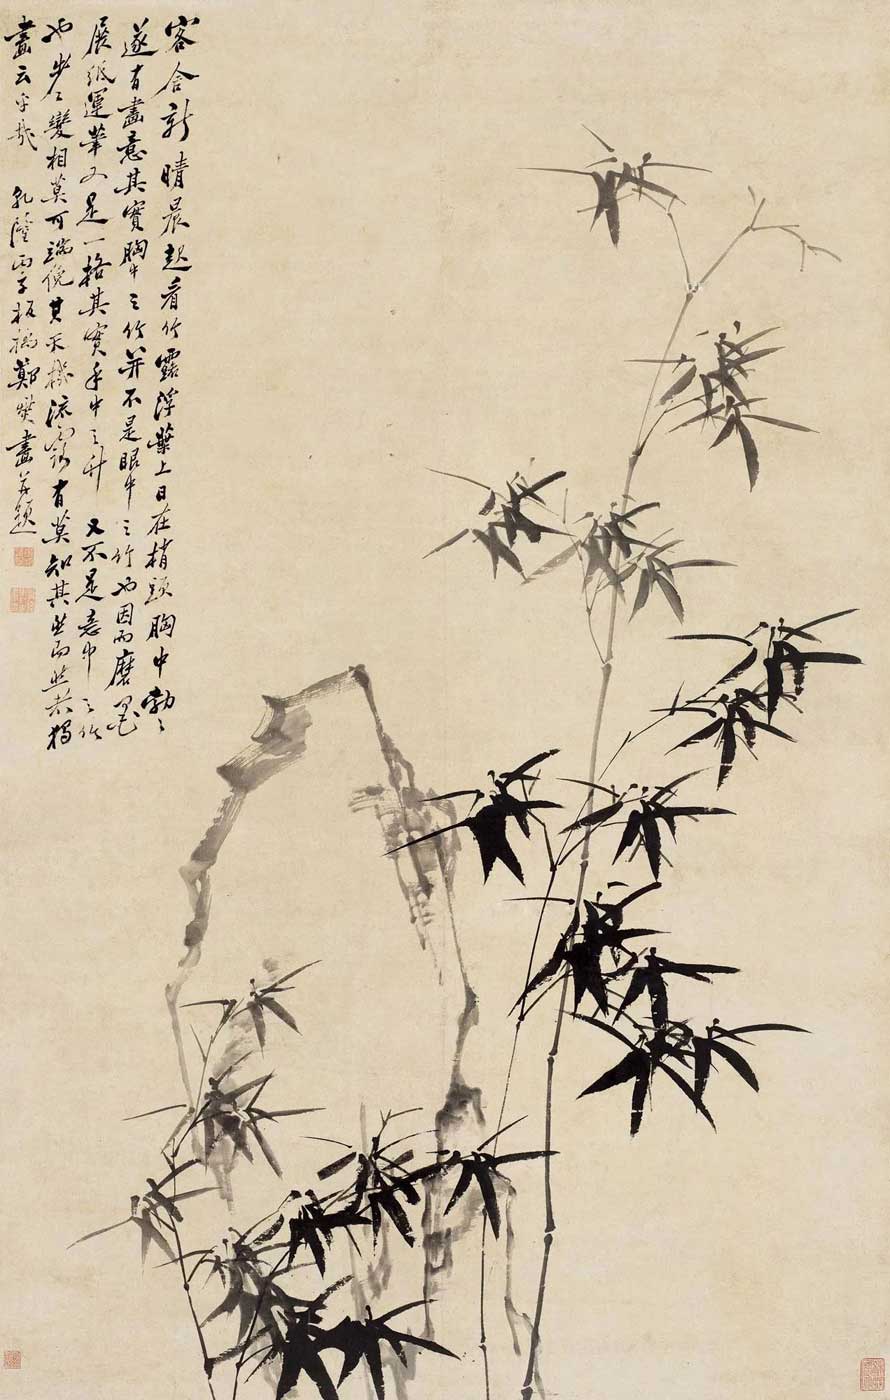 客舍新晴晨起看竹露浮葉上日在梢頭胸中勃〻
遂有畫意其實胸中之竹并不是眼中之竹也因而磨墨
展紙運筆又是一格其實手中之竹又不是意中之竹
也步〻變相莫可端倪其天機流露有莫知其然而然者獨
畫云乎哉 乾隆丙子板橋鄭燮畫并題